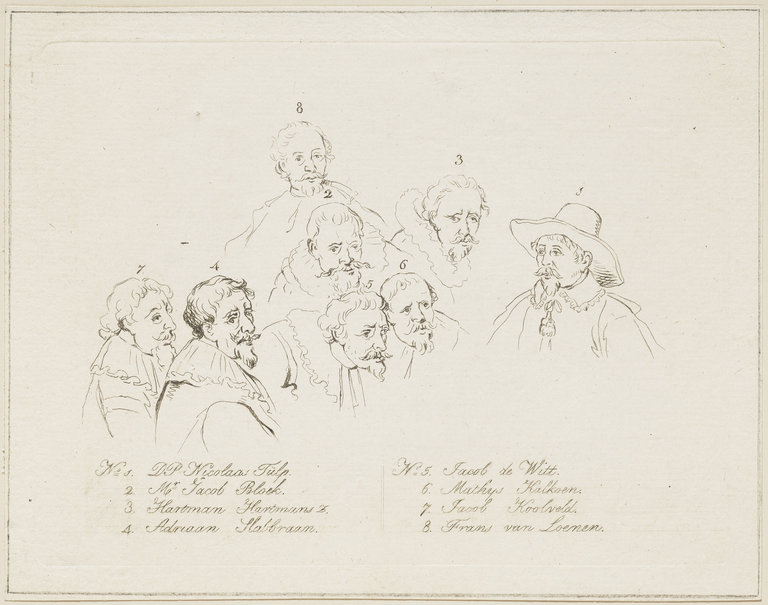 8
3
1
2
7
4
5
6
No 1. D.P. Nicolaas Tulp.
2. Mr. Jacob Bloek.
3. Hartman Hartmans z.
4. Adriaan Slatbraan.
No 5. Jacob de Witt.
6. Mathys Kalkoen.
7. Jacob Koolveld.
8. Frans van Loenen.